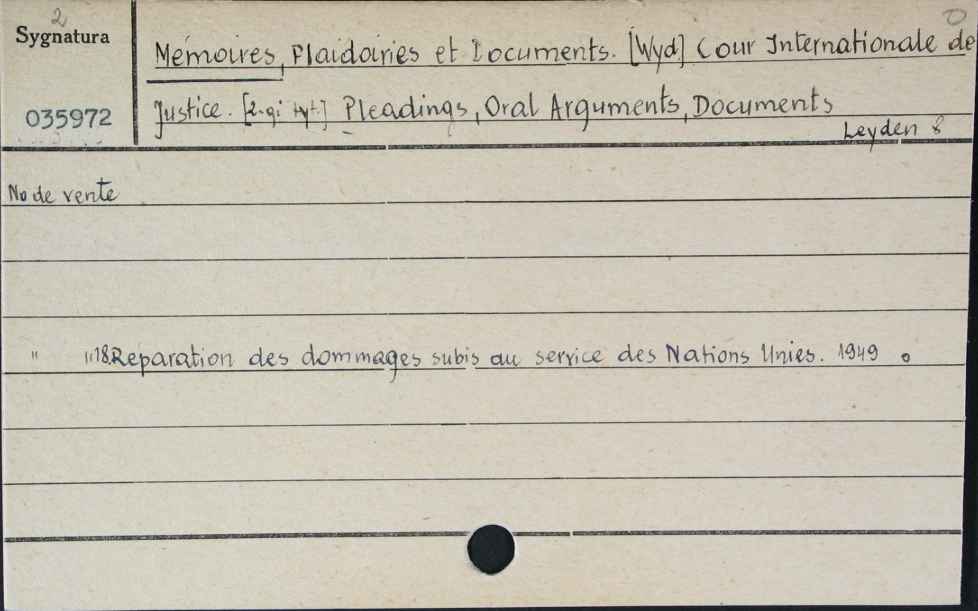 2
Sygnatura
035972
O
Mémoires, Plaidoiries et Documents. [Wyd] Cour Internationale de
Justice. [2-gi tyt.] Pleadings, Oral Arguments, Documents
Leyden 8
No de vente
" "18. Reparation des dommages subis au service des Nations Unies. 1949